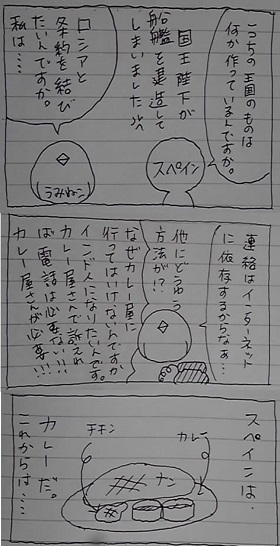 こっちの王国のものは
何か作っているんですか。
スペイン
国王陛下が
船艦を建造して
しまいました
ロシアと
条約を結び
たいんですか。
私は……
うみねこ
連絡はインターネット
に依存するからなぁ…
他にどうゆう
方法が!?
なぜカレー屋に
行ってはいけないんですか
インド人になりたいんです。
カレー屋さんで訴えれ
ば電話は必要ない!!
カレー屋さんが必要!!!
スペインは、
カレー
ナン
チキン
カレーだ。
これからは……